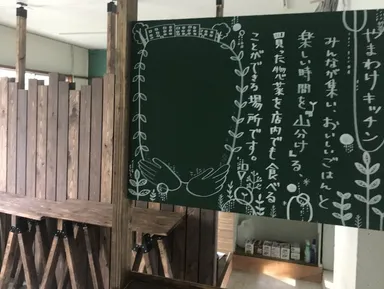 やまわけキッチン
みんなが集い、おいしいごはんと
楽しい時間を「山分け」る、
買った惣菜を店内でも食べる
ことができる場所です。